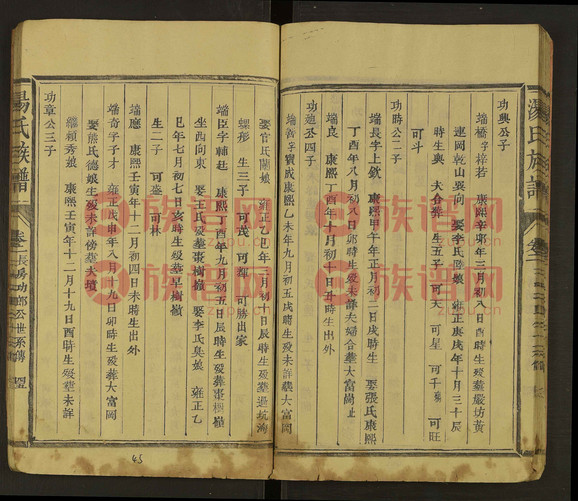 湯氏族譜
卷二
功興公子
端橋字梓若 康熙辛卯年三月初八日時生歿葬嚴坊黃
連岡乾山巽向 娶李氏 娘 雍正庚戌年十月三十日辰
時生與 大合葬 生五子 可天 可星 可千 可旺
可斗
功時公二子
端長字上欽 康熙甲午年正月初二日戌時生 娶張氏康熙
丁酉年八月初八日卯時生歿夫婦合葬大富岡上
端良 康熙丁酉年十月初十日時生出外
功 公四子
端 字寶成康熙乙未年九月初五戌時生歿未詳 大富岡
娶官氏閏娘 雍正乙巳年三月初十日辰時生歿葬過坑 
端彤 生三子 可茂 可輝 可勝出家
端臣字輔廷 康熙丁酉年九月初五日辰時生歿葬棗樹嶺
坐酉向東 娶王氏歿葬棗樹嶺 娶李氏吳娘 雍正乙
巳年七月初七日亥時生歿葬旱樹嶺
生二子 可盛 可林
端應 康熙壬寅年十二月初四日未時生出外
端奇字子才 雍正戊申年八月十九日卯時生歿葬大富岡
娶熊氏德娘生歿未詳傍葬夫墳
繼賴秀娘 康熙壬寅年十二月十九日酉時生歿葬未詳
功章公三子
湯氏族譜
卷二 長房功郎公世系傳
43
族谱网
zupu.cn